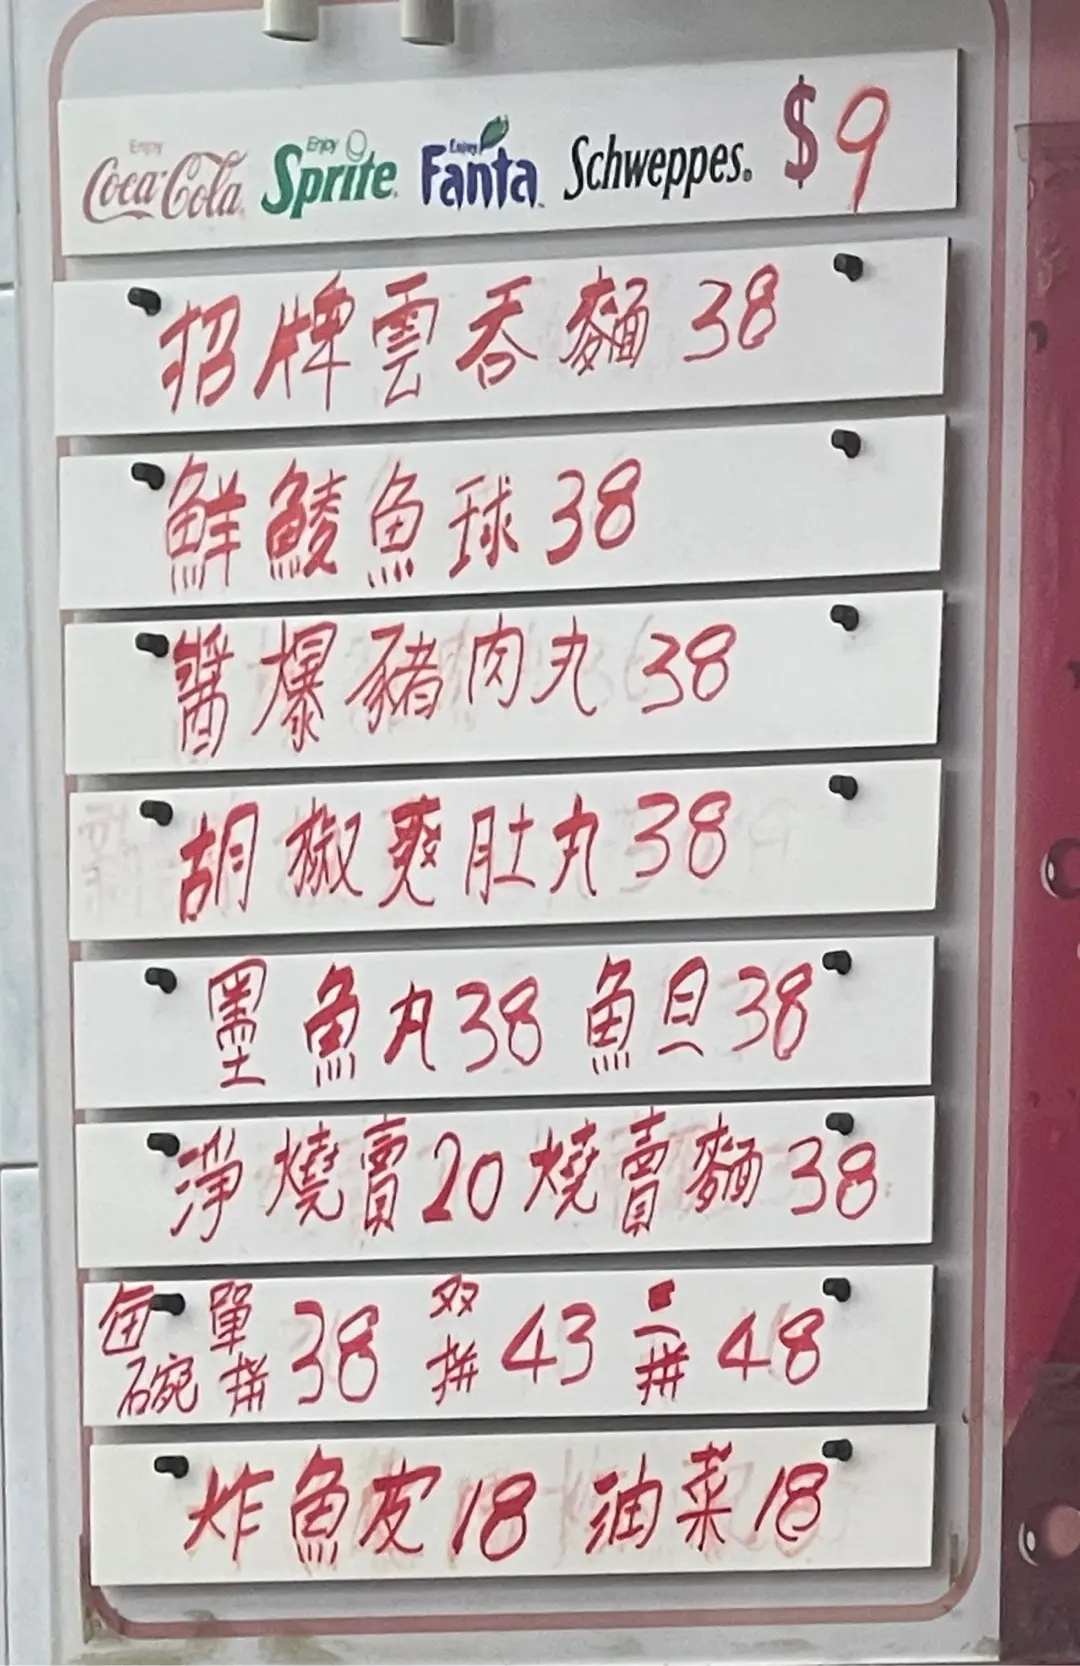 Enjoy Coca-Cola Enjoy Sprite Enjoy Fanta Schweppes. $9
招牌雲吞麵 38
鮮鯪魚球 38
醬爆豬肉丸 38
胡椒爽肚丸 38
墨魚丸 38 魚旦 38
淨燒賣 20 燒賣麵 38
每碗 單拼 38 双拼 43 三拼 48
炸魚皮 18 油菜 18